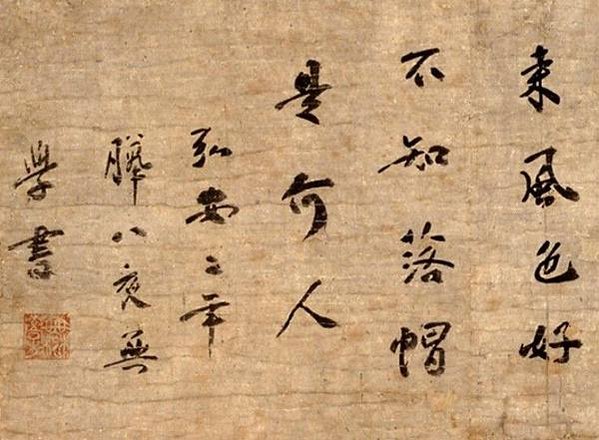 来風色好
不知落帽
是何人
弘安二年
臘八夜無
學書